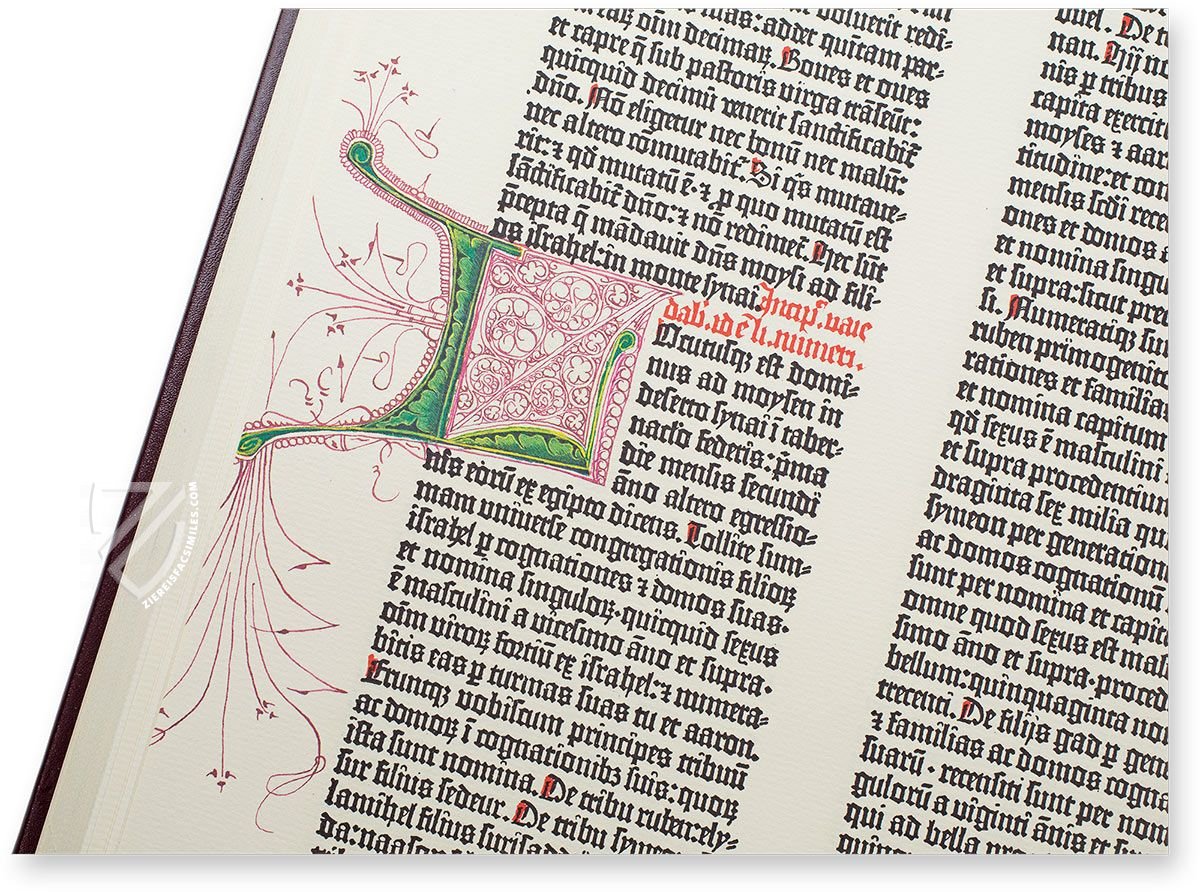 oīm decimaꝝ. Boues et oues
et capre q̄ sub pastoris virga trāseūt:
quicquid decimū venerit sanctificabit̄
dn̄o. Nō eligetur nec bonū nec malū:
nec altero cōmutabit̄. Si q̄s mutaue-
rit: ⁊ qd̄ mutatū ē. ⁊ p̄ quo mutatū est
sāctificabit̄ dn̄o: ⁊ nō redimet̄. Hec sūt
p̄cepta q̄ mādauit dn̄s moysi ad fili-
os israhel: in monte synai.
Incip̄.
dab̄. id ē li. numeri.
Locutusq̄ꝫ est domi-
nus ad moysen in
deserto synai ī taber-
naclo federis: p̄ma
die mensis secundi
āno altero egressio-
nis eorū ex egipto dicens. Tollite sum-
mam vniuerse congregationis filioꝝ
israhel p̱ cognationes ⁊ domos suas.
et nomina singuloꝝ. quicquid sexus
ē masculini a vicesimo āno et supra.
oīm viroꝝ fortiū ex israhel: ⁊ numera-
bitis eas p̱ turmas suas tu et aaron.
Eruntqꝫ vobiscum principes tribuū
ac domoꝝ ī cognationibꝫ suis: quoꝝ
ista sunt nomina. De tribu ruben: ely-
sur filius sedeur. De tribu symeon
lamihel filius surisaddai
da: naason
nan. Hij
nis p̱ tribus
capita exercit
moyses ⁊ aar
titudine: et con
mensis scd̄i rece
ones et domos a
et nomina singu
et supra: sicut prec
si. Numeratiqꝫ sun
ruben primogenit
rationes et familias
et nomina capitum
qd̄ sexus ē masculini
et supra procedentium
draginta sex milia qu
symeon per generation
ac domos cognationū
sunt per nomina et capita
omne quod sexus est mas
simo āno et supra. proced
bellum: quinquaginta no
trecenti. De filijs gad p̱ gene
⁊ familias ac domos cogna
suarū. recensiti sunt per nom
guloru a viginti ānis et
qui ad bella
ZIEREISFACSIMILES.COM